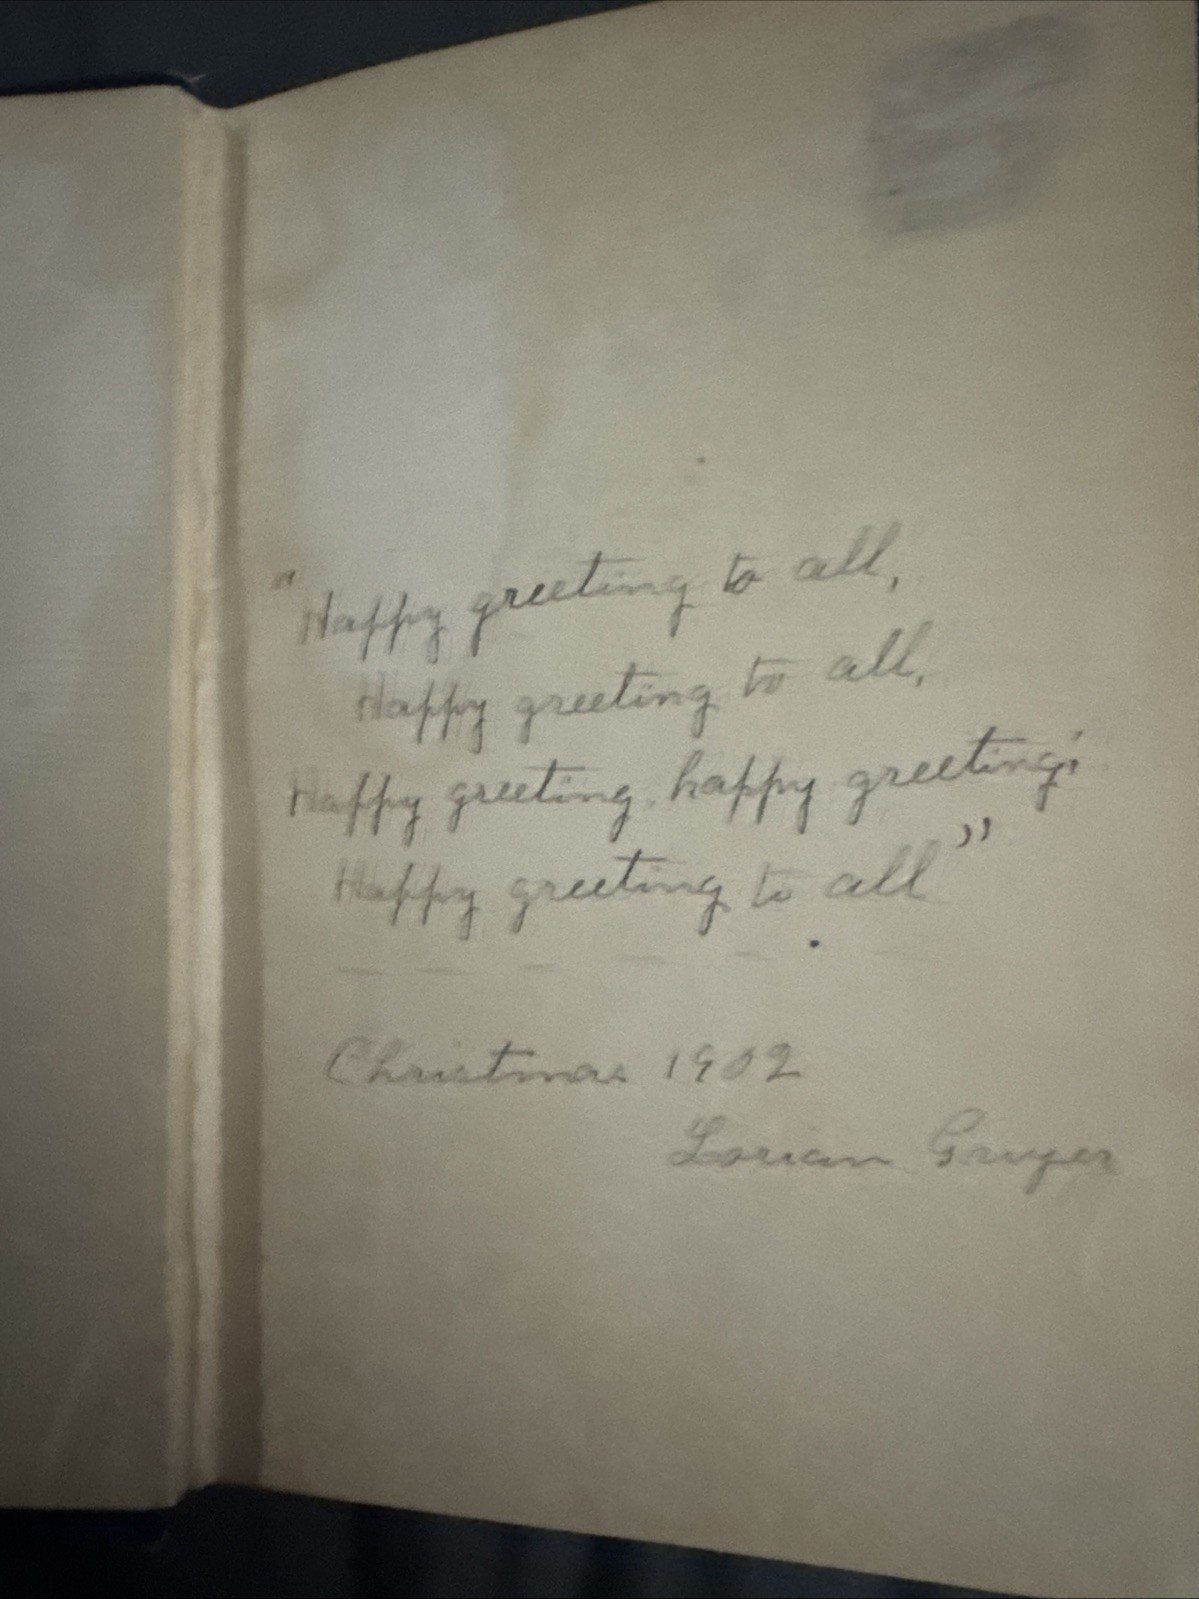 "Happy greeting to all,
Happy greeting to all,
Happy greeting, happy greeting;
Happy greeting to all"
Christmas 1902
Lorian Gruyer